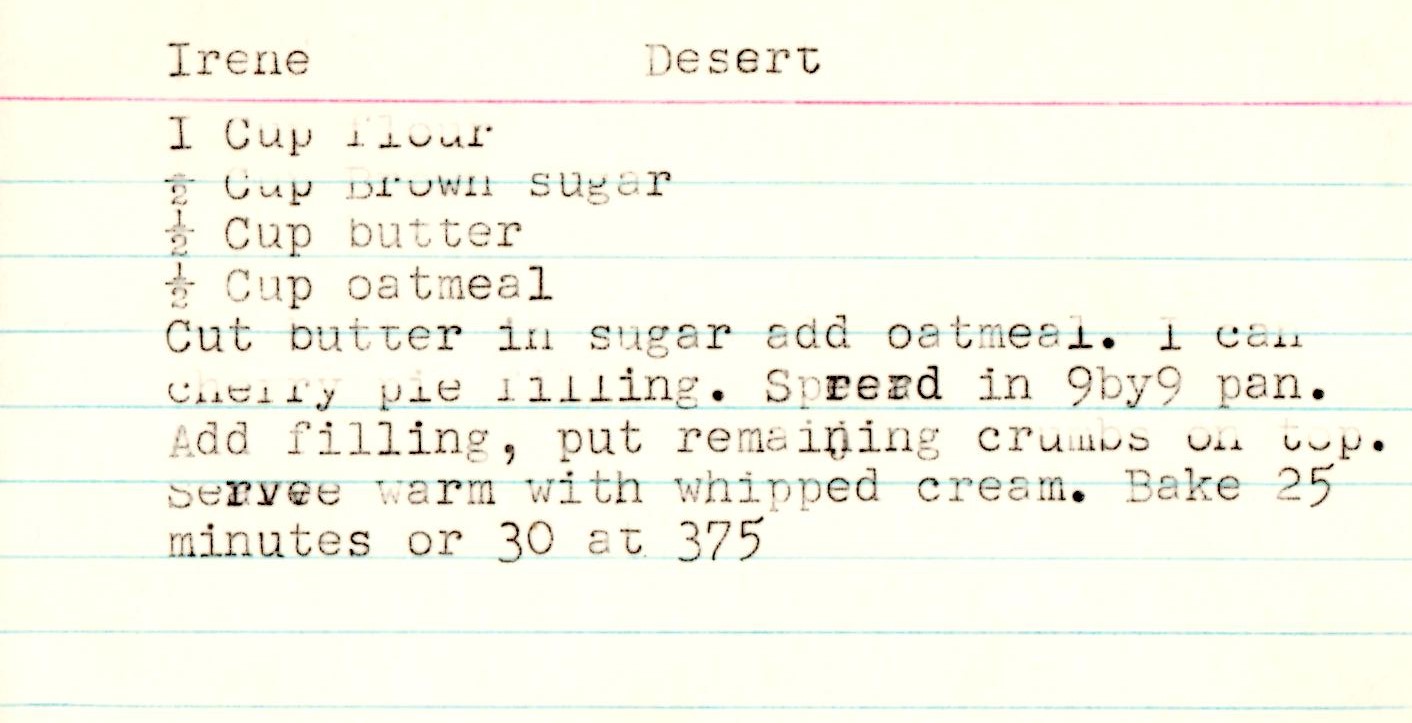 Irene Desert
I Cup flour
½ Cup Brown sugar
½ Cup butter
½ Cup oatmeal
Cut butter in sugar add oatmeal. I can
cherry pie filling. Spread in 9by9 pan.
Add filling, put remaining crumbs on top.
Servee warm with whipped cream. Bake 25
minutes or 30 at 375